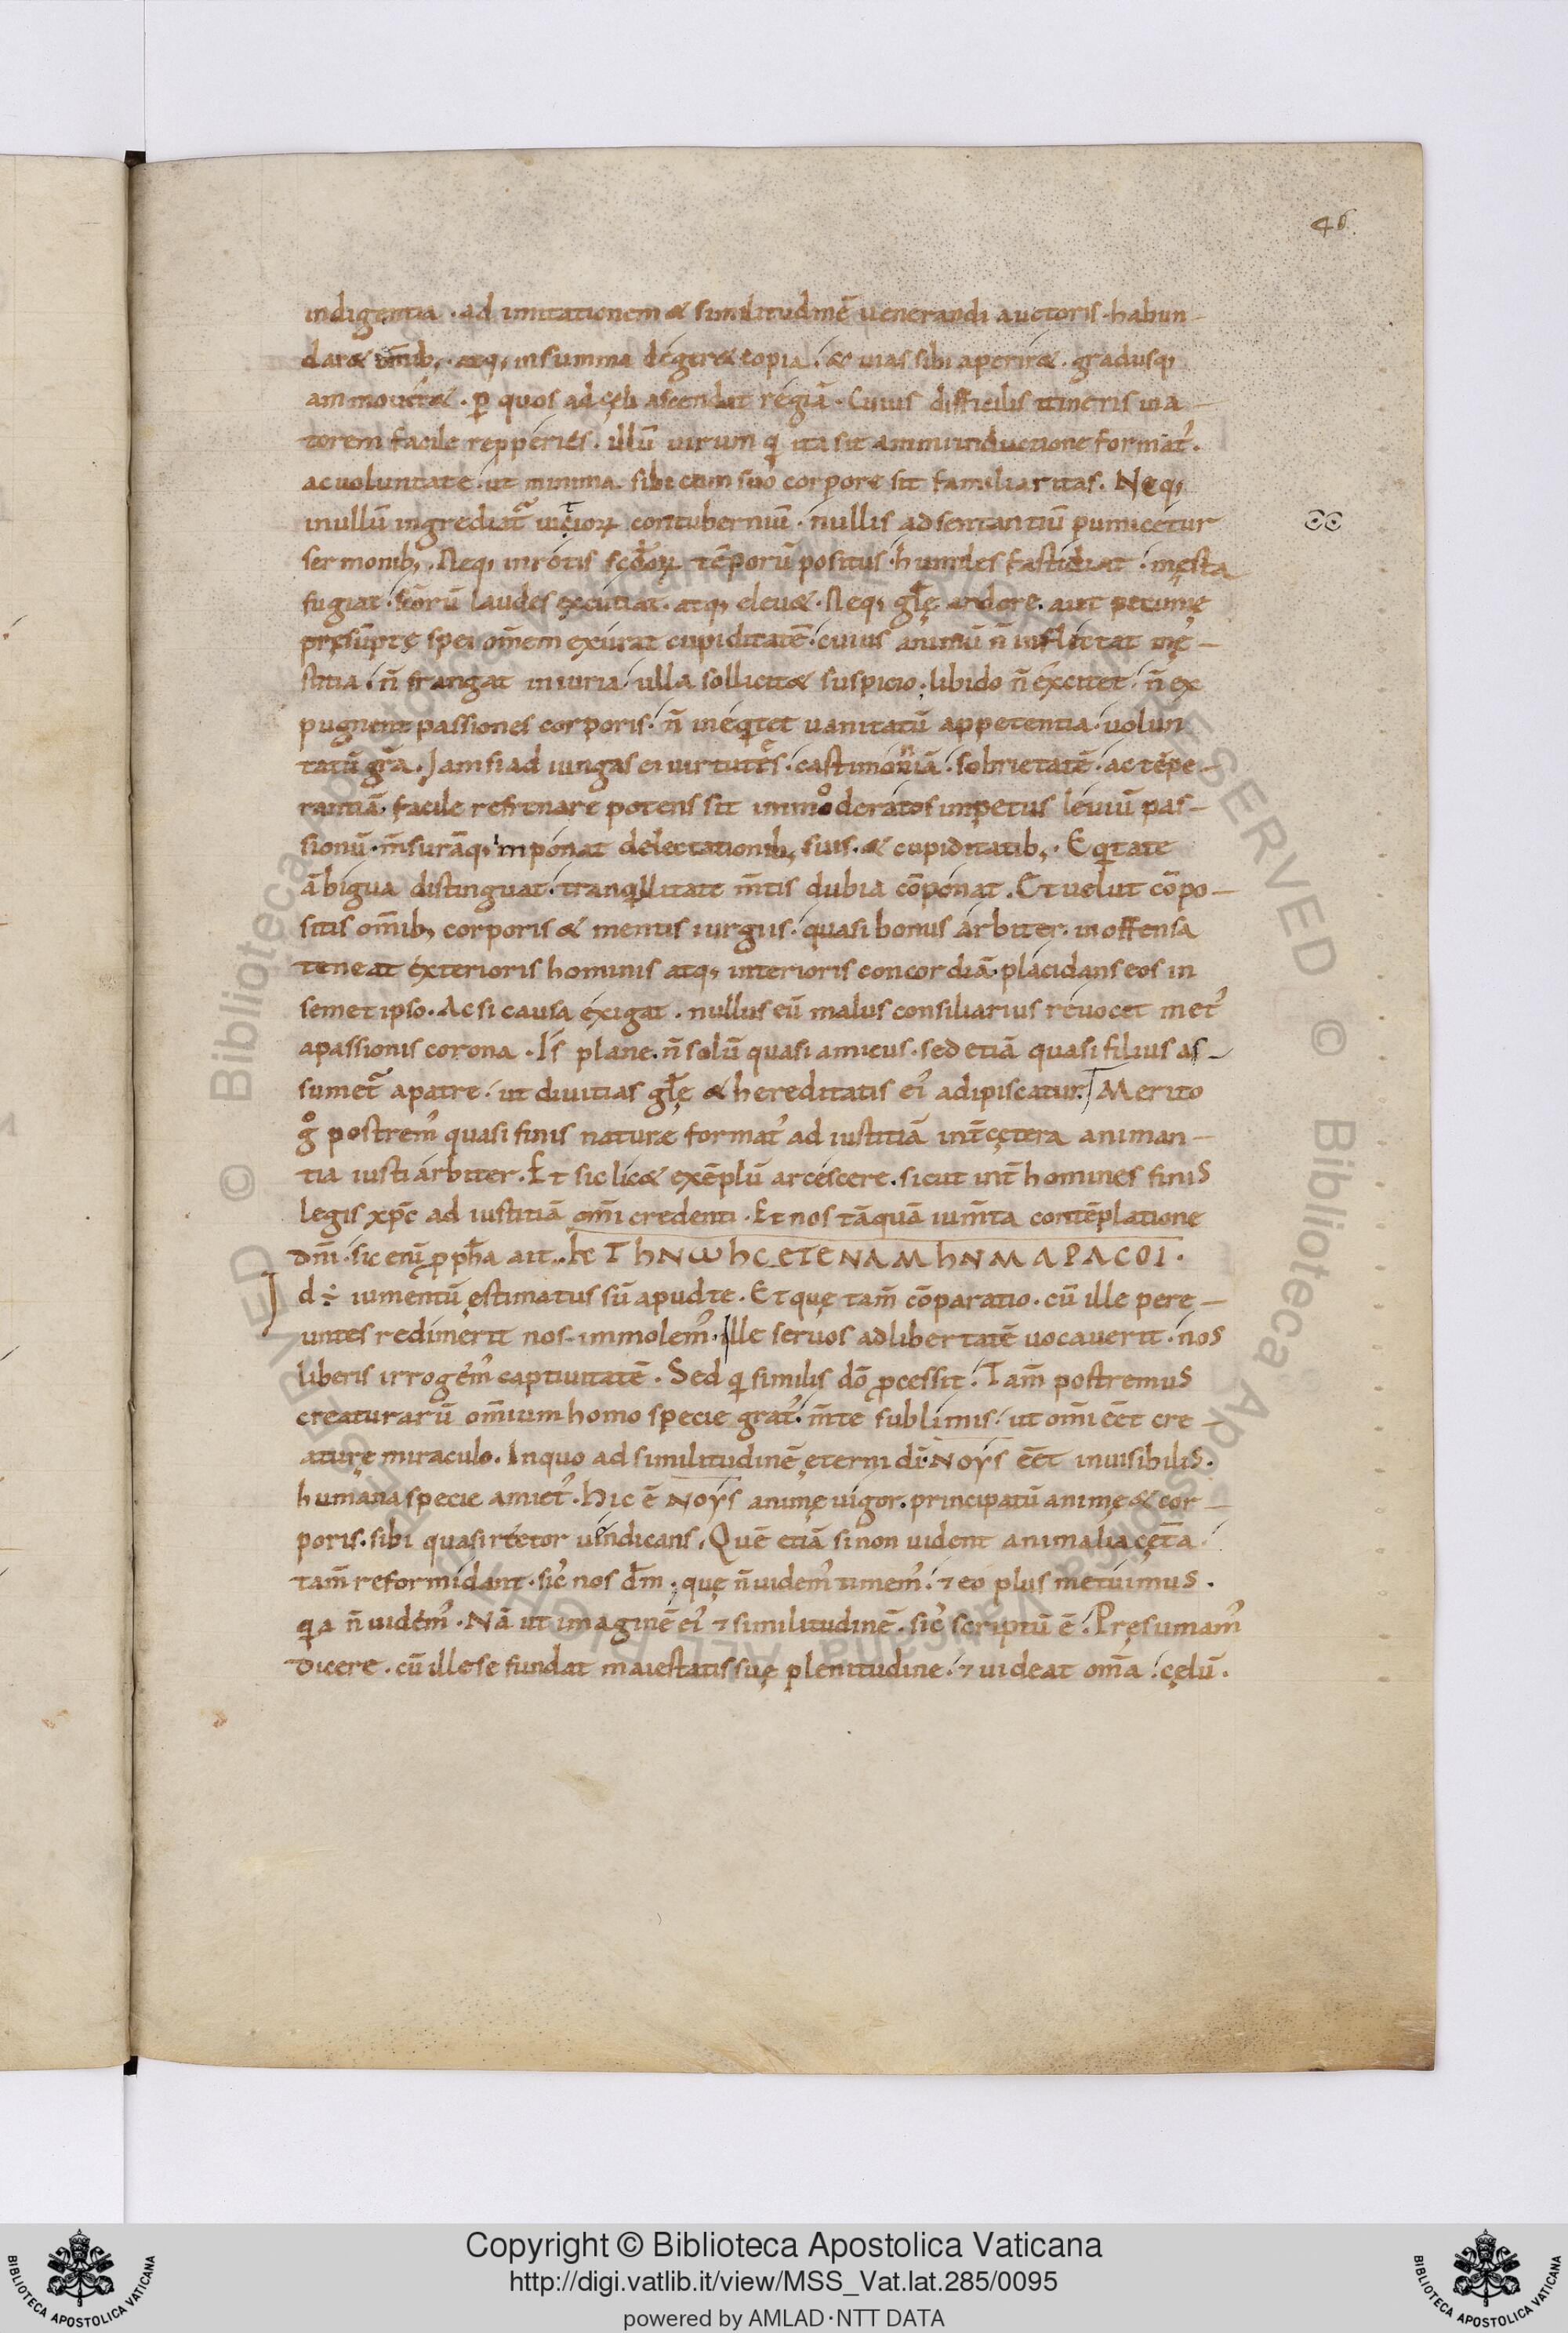 46
indigentia · ad imitationem & similitudinē uenerandi auctoris · habun-
dar& om̄ib; · atq; in summa deger& copia · & uias sibi aperir& · gradusq;
ammouer& · ꝑ quos ad cęli ascendat regiā · Cuius difficilis itineris uia-
torem facile repperies · illū uirum qͥ ita sit animi inductione format᾿ ·
ac uoluntate · ut minima · sibi cum suo corpore sit familiaritas · Neq;
in ullū ingrediat᷑ uicioꝝ contuberniū · nullis adsentantiū pumicetur
sermonib; · Neq; in rotis scđoꝝ tēporū positus · humiles fastidiat · męsta
fugiat · scorū laudes excutiat · atq; eleu& · Neq; gl̄ę ardore · aut pecunię
pręsūptę spei om̄em exurat cupiditatē · cuius animū n̄ inflectat mę-
stitia · n̄ frangat iniuria · ulla sollicit& suspicio · libido n̄ excitet · n̄ ex
pugnent passiones corporis · n̄ inęqͥtet uanitatū appetentia · uolun
tatū gr̄a · Iam si adiungas ei uirtutes · castimoniā · sobrietatē · ac tēpe-
rantiā · facile refrenare potens sit immoderatos impetus leuiū pas-
sionū · m̄surāq; imponat delectationib; suis · & cupiditatib; · Eqͥtate
ābigua distinguat · tranqͥllitate m̄tis dubia cōponat · Et uelut cōpo-
sitis om̄ib; corporis & mentis iurgiis · quasi bonus arbiter · inoffensa
teneat exterioris hominis atq; interioris concordiā · placidans eos in
semet ipso · Ac si causa exigat · nullus eū malus consiliarius reuocet met᾿
a passionis corona · Is plane · n̄ solū quasi amicus · sed etiā quasi filius as-
sumet᷑ a patre · ut diuitias gl̄ę & hereditatis ei᾿ adipiscatur · Merito
gͦ postrem᾿ quasi finis naturæ format᾿ ad iustitiā int̄ cętera animan-
tia iusti arbiter · Et sic lic& exēplū arcescere · sicut int̄ homines finis
legis xp̄c ad iustitiā om̄i credenti · Et nos tāquā ium̄ta contēplatione
dn̄i · sic enī ꝓpha ait · KTHNωHC ETENAMHNΠAPACOI ·
d ÷ iumentū ęstimatus sū apud te · Et quę tam̄ cōparatio · cū ille pere-
untes redimerit nos · immolem᾿ · Ille seruos ad libertatē uocauerit · nos
liberis irrogem᾿ captiuitatē · Sed qͥ similis dō ꝓcessit · Tam̄ postremus
creaturarū om̄ium homo specie grat᾿ · m̄te sublimis · ut om̄i eēt cre-
aturę miraculo · In quo ad similitudinē ęterni dī · NOYS eēt inuisibilis ·
humana specie amict᾿ · Hic ē NOYS animę uigor · principatū animę & cor-
poris · sibi quasi rector uindicans · Quē etiā si non uident animalia cęt̄a ·
tam̄ reformidant · sic᾿ nos dm̄ · quę n̄ uidem᾿ timem᾿ · ⁊ eo plus metuimus ·
qͥa n̄ uidem᾿ · Nā ut imaginē ei᾿ ⁊ similitudinē · sic᾿ scriptū ē · Pręsumam᾿
dicere · cū ille se fundat maiestatis suę plenitudine · ⁊ uideat om̄a · cęlū ·
Copyright © Biblioteca Apostolica Vaticana
http://digi.vatlib.it/view/MSS_Vat.lat.285/0095
powered by AMLAD·NTT DATA
BIBLIOTECA APOSTOLICA VATICANA
BIBLIOTECA APOSTOLICA VATICANA